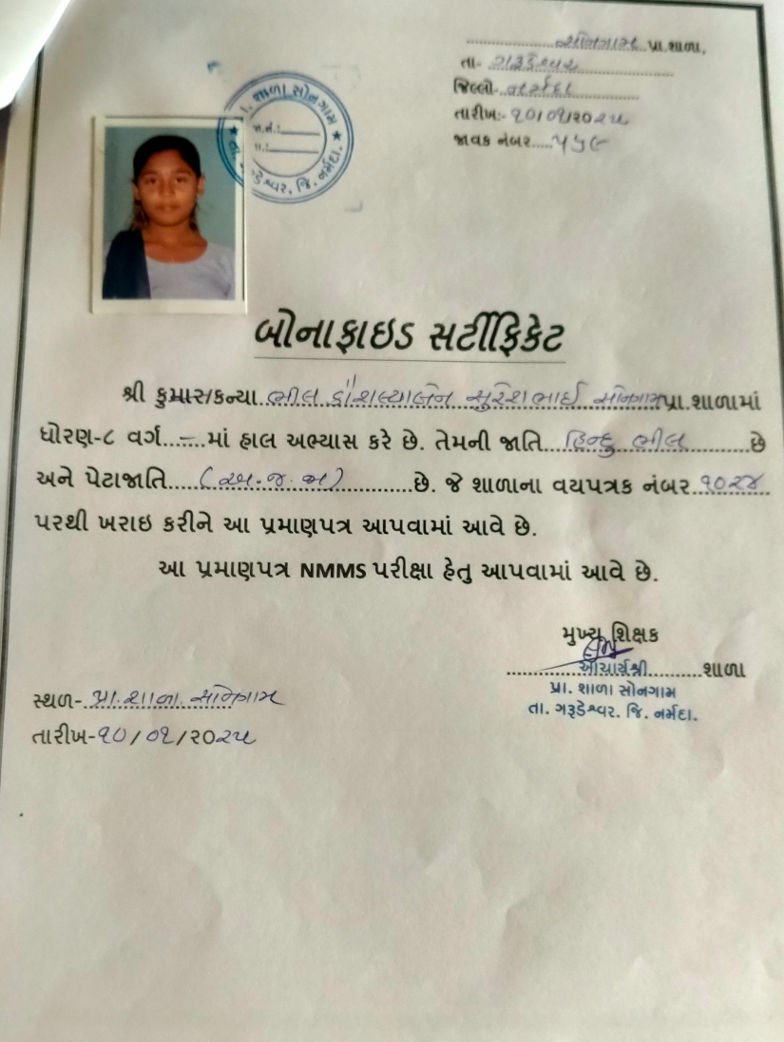 સોનગામ પ્રા.શાળા,
તા- ગરૂડેશ્વર
જિલ્લો- નર્મદા
તારીખ:- ૧૦/૦૧/૨૦૨૫
જાવક નંબર.....૫૬૯
પ્રા. શાળા સોનગામ
જા.નં.:
તા.:
તા. ગરૂડેશ્વર. જિ. નર્મદા.
બોનાફાઇડ સર્ટીફિકેટ
શ્રી કુમાર/કન્યા..ભીલ કૌશલ્યાબેન સુરેશભાઈ સોનગામ પ્રા.શાળામાં
ધોરણ-૮ વર્ગ..–...માં હાલ અભ્યાસ કરે છે. તેમની જાતિ...હિન્દુ ભીલ........છે
અને પેટાજાતિ....(અ.જ.જા)..........છે. જે શાળાના વયપત્રક નંબર..૧૦૨૪..
પરથી ખરાઇ કરીને આ પ્રમાણપત્ર આપવામાં આવે છે.
આ પ્રમાણપત્ર NMMS પરીક્ષા હેતુ આપવામાં આવે છે.
મુખ્ય શિક્ષક
આચાર્યશ્રી.........શાળા
પ્રા. શાળા સોનગામ
તા. ગરૂડેશ્વર. જિ. નર્મદા.
સ્થળ- પ્રા.શાળા. સોનગામ
તારીખ-૧૦/૦૧/૨૦૨૫